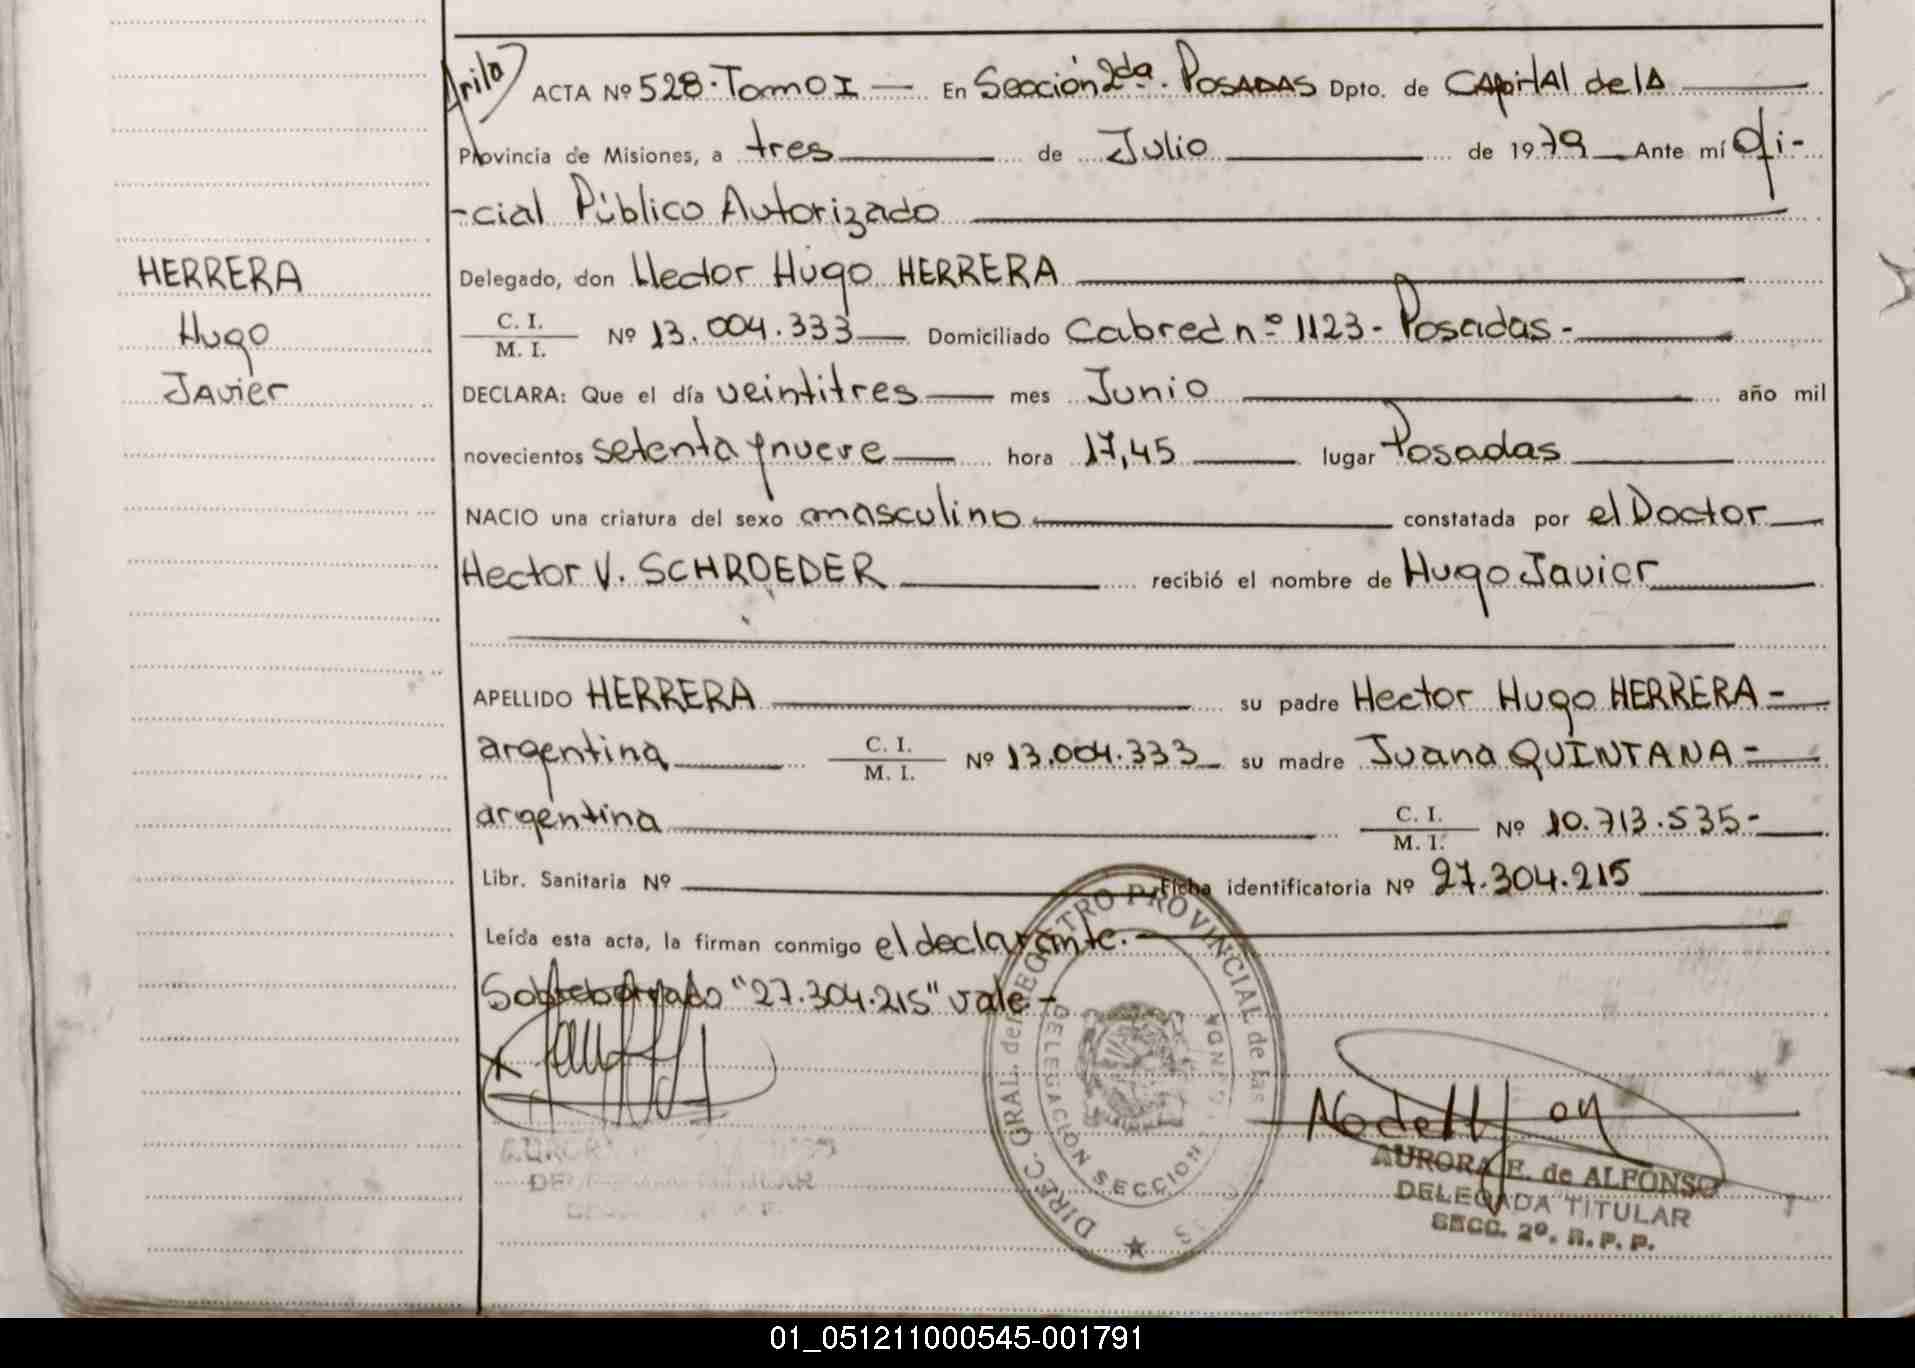 ACTA Nº 528·Tomo I — En Sección 2da. POSADAS Dpto. de CAPitAl de lA
Provincia de Misiones, a tres de Julio de 1979 Ante mí Ofi-
-cial Público Autorizado
HERRERA
Hugo
Javier
Delegado, don Hector Hugo HERRERA
C. I.
M. I. Nº 13.004.333 Domiciliado Cabred nº 1123- Posadas-
DECLARA: Que el día veintitres mes Junio año mil
novecientos setenta y nueve hora 17,45 lugar Posadas
NACIO una criatura del sexo masculino constatada por el Doctor
Hector V. SCHROEDER recibió el nombre de Hugo Javier
APELLIDO HERRERA su padre Hector Hugo HERRERA-
argentina C. I.
M. I. Nº 13.004.333 su madre Juana QUINTANA-
argentina C. I.
M. I. Nº 10.713.535-
Libr. Sanitaria Nº Ficha identificatoria Nº 27.304.215
Leída esta acta, la firman conmigo el declarante.
"27.304.215" vale-
DIREC. GRAL. del REGISTRO PROVINCIAL de las
DELEGACIÓN SECCION
AURORA E. de ALFONSO
DELEGADA TITULAR
SECC. 2º. R. P. P.
01_051211000545-001791